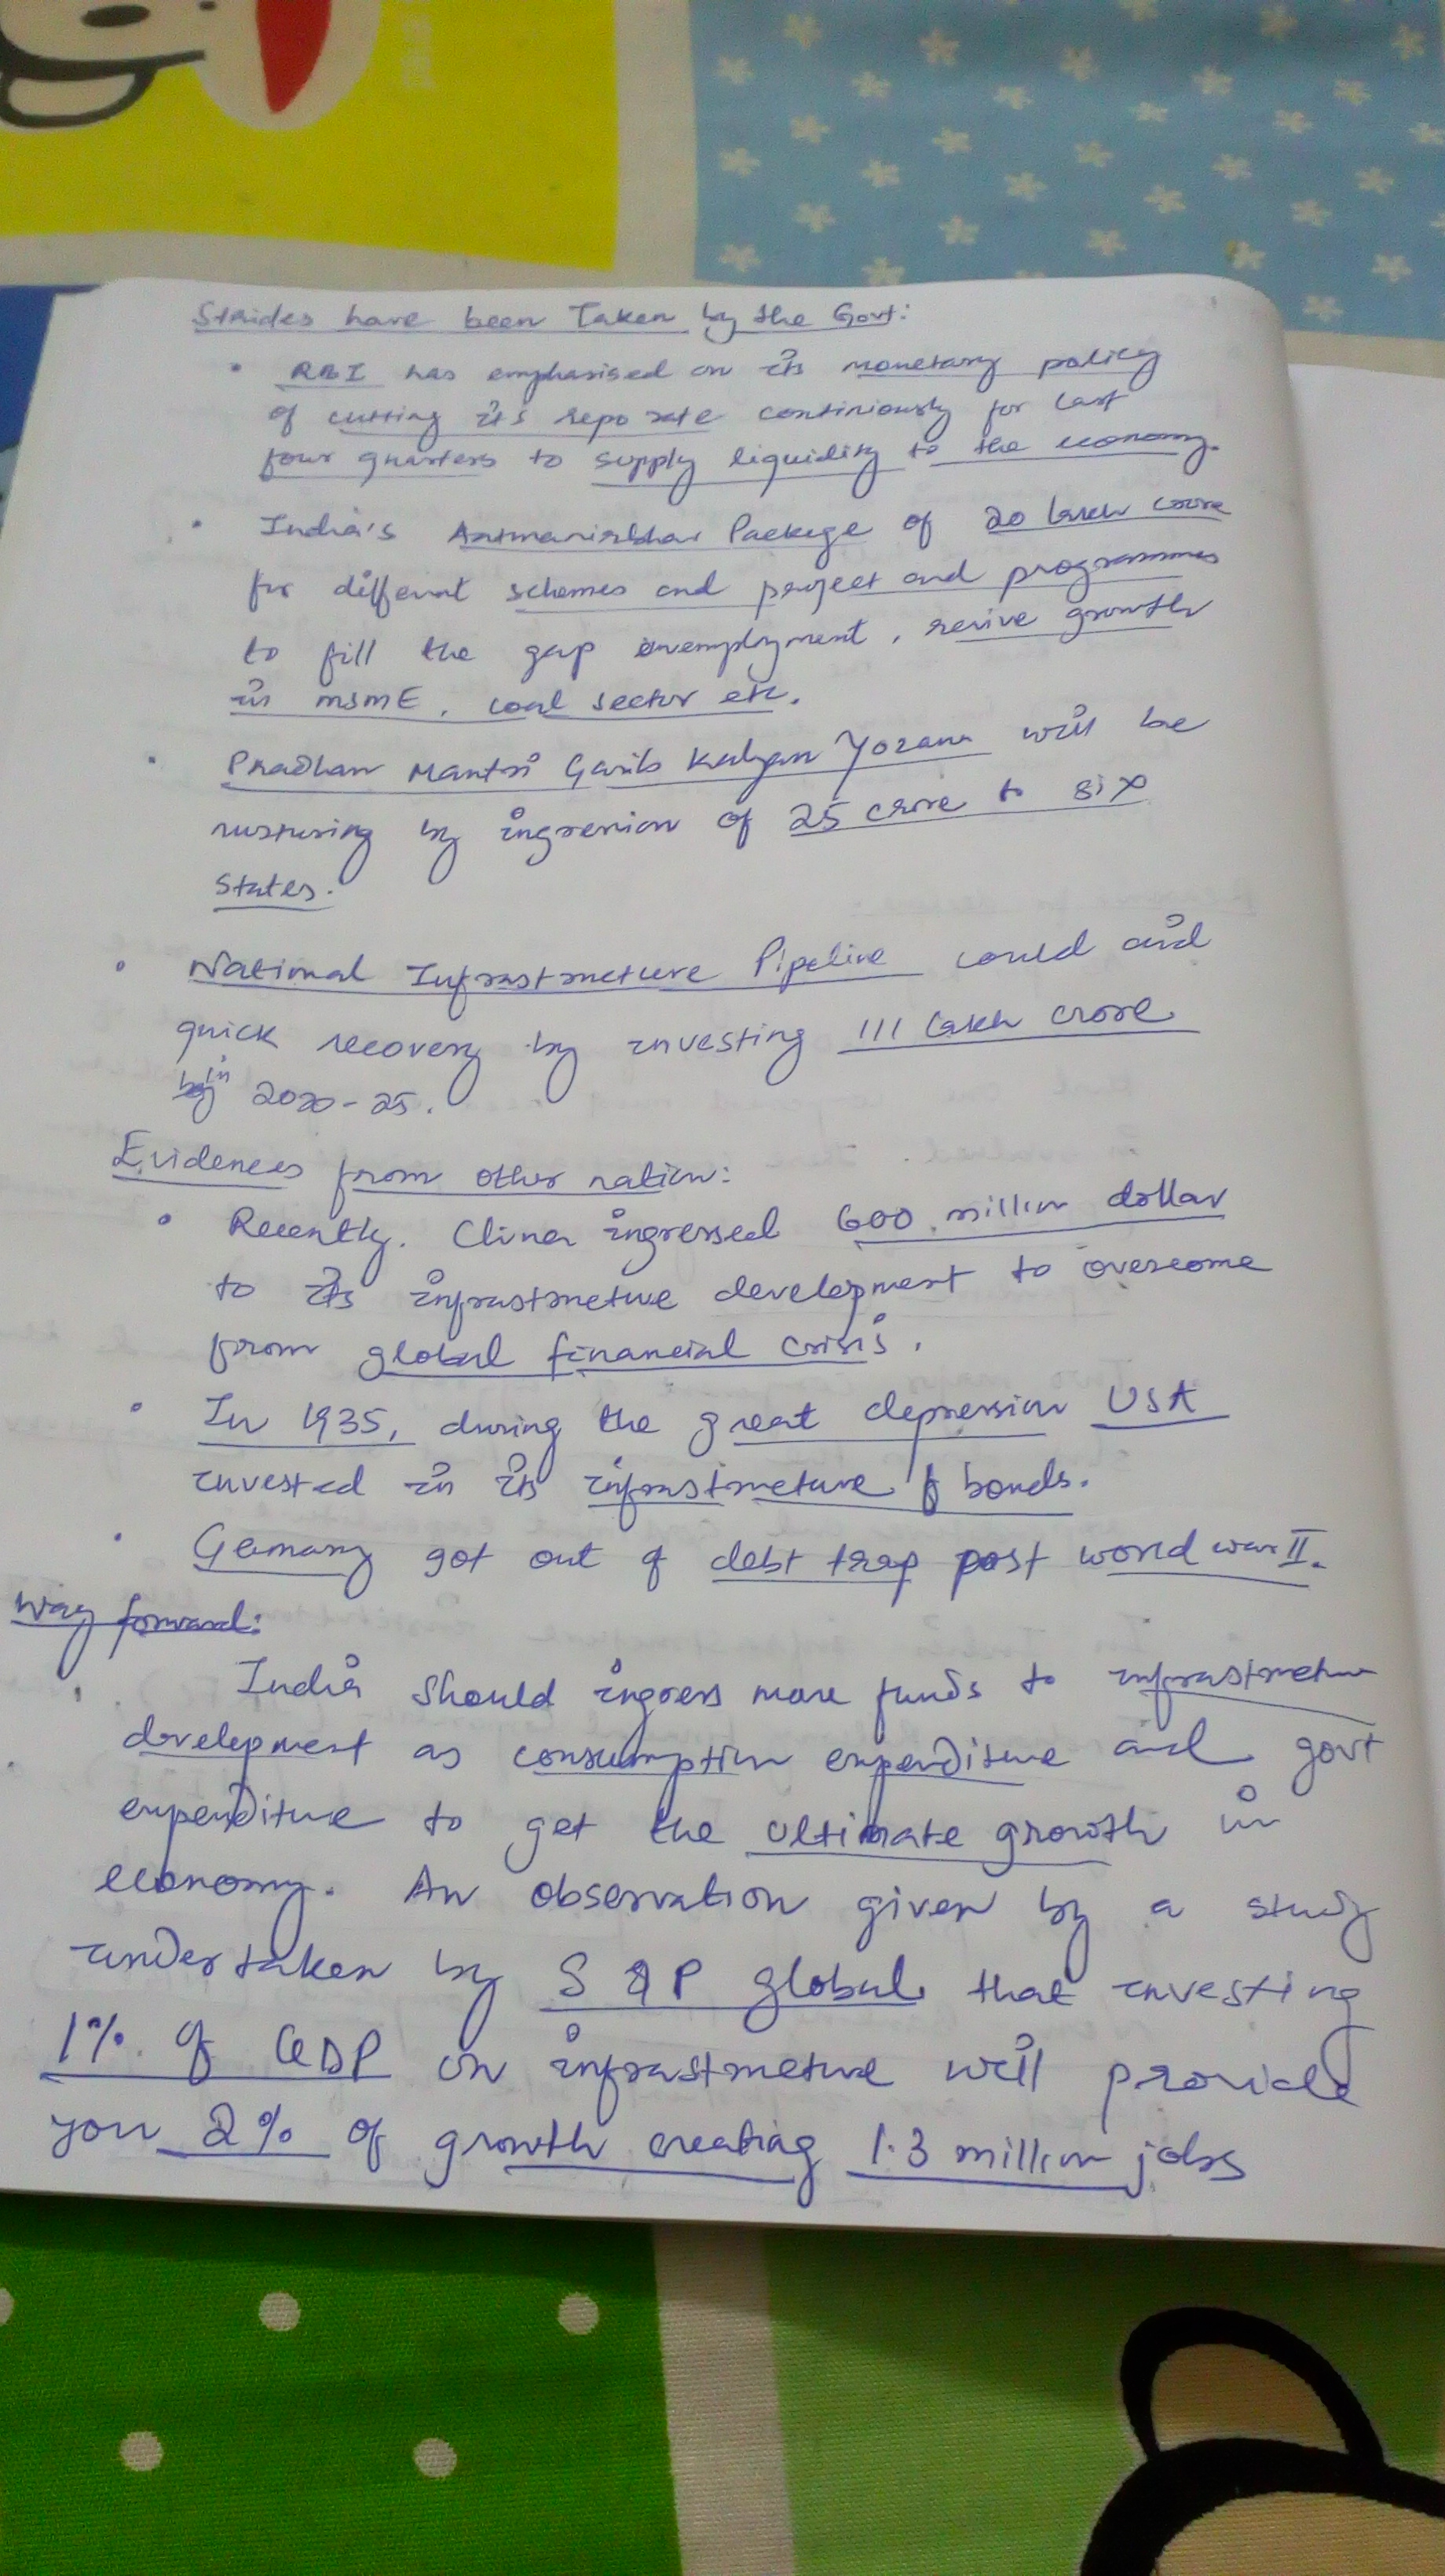 Strides have been Taken by the Govt:
• RBI has emphasised on its monetary policy
of cutting its repo rate continiously for last
four quarters to supply liquidity to the economy.
• India's Aatmanirbhar Package of 20 lakh crore
for different schemes and project and programmes
to fill the gap unemployment, revive growth
in MSME, coal sector etc.
• Pradhan Mantri Garib Kalyan Yozana will be
nurturing by ingression of 25 crore to six
states.
• National Infrastructure Pipeline could aid
quick recovery by investing 111 lakh crore
in 2020-25.
Evidences from other nation:
• Recently, China ingressed 600 million dollar
to its infrastructure development to overcome
from global financial crisis.
• In 1935, during the great depression USA
invested in its infrastructure bonds.
• Gemany got out of debt trap post world war II.
Way forward:
India should ingress more funds to infrastructure
development as consumption expenditure and govt
expenditure to get the ultimate growth in
economy. An observation given by a study
undertaken by S&P global that investing
1% of GDP on infrastructure will provide
you 2% of growth creating 1.3 million jobs